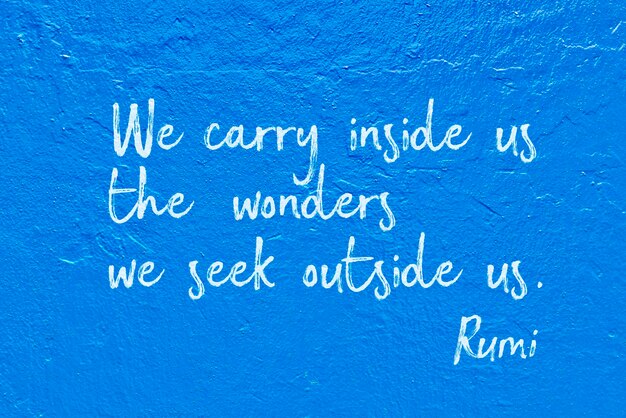 We carry inside us
the wonders
we seek outside us.
Rumi